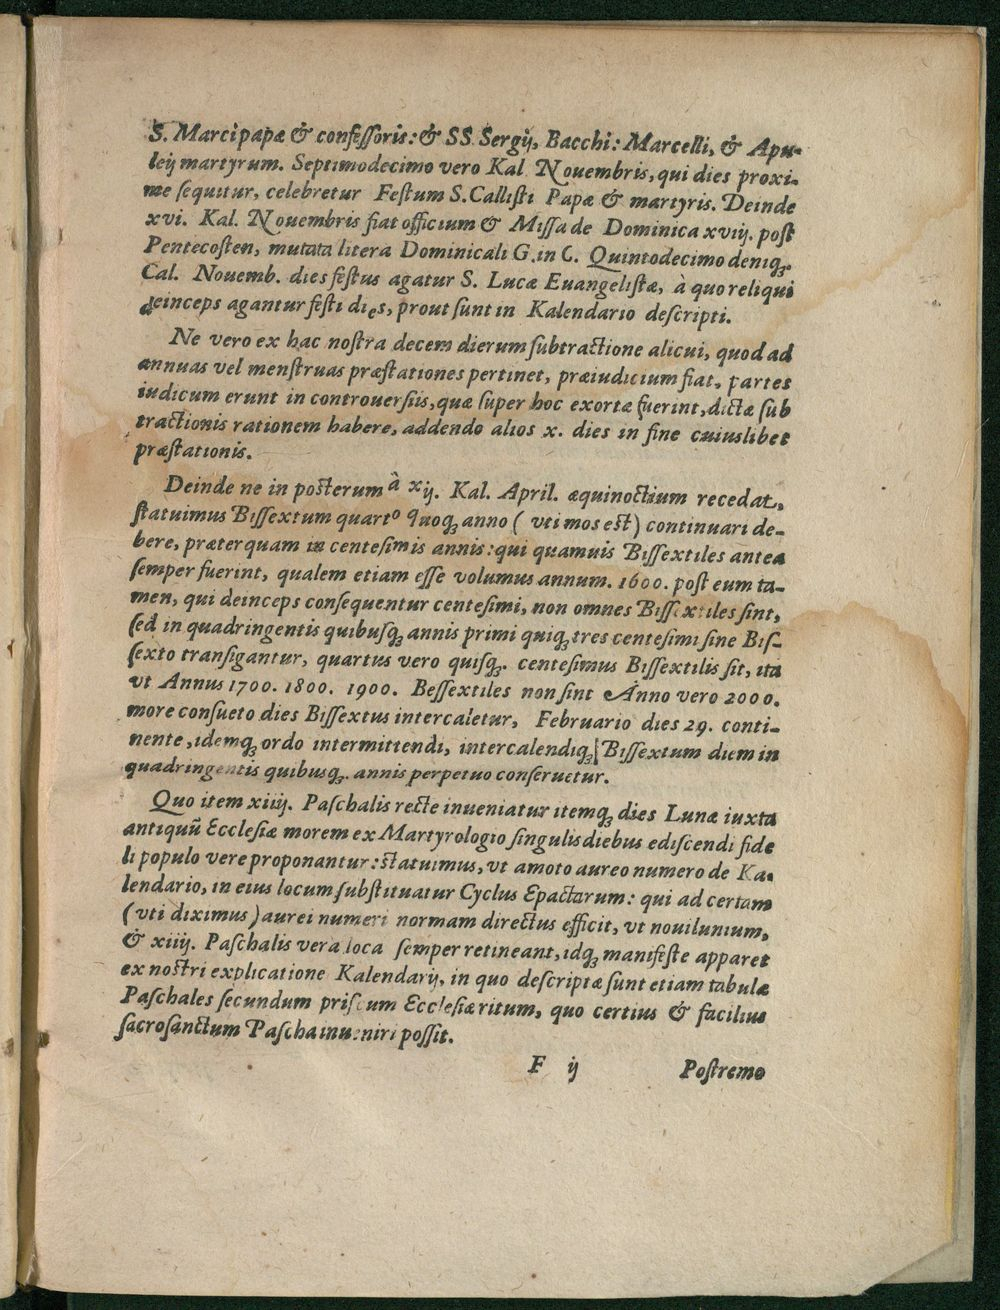 S. Marci papæ & confessoris: & SS Sergij, Bacchi: Marcelli, & Apu-
leij martyrum. Septimodecimo vero Kal Nouembris, qui dies proxi-
me sequitur, celebretur Festum S. Callisti Papæ & martyris. Deinde
xvi. Kal. Nouembris fiat officium & Missa de Dominica xviij. post
Pentecosten, mutata litera Dominicali G. in C. Quintodecimo deniq;.
Cal. Nouemb. dies festus agatur S. Lucæ Euangelistæ, à quo reliqui
deinceps agantur festi dies, prout sunt in Kalendario descripti.
Ne vero ex hac nostra decem dierum subtractione alicui, quod ad
annuas vel menstruas præstationes pertinet, præiudicium fiat, partes
iudicum erunt in controuersiis, quæ super hoc exortæ fuerint, dictæ sub
tractionis rationem habere, addendo alios x. dies in fine cuiuslibet
præstationis.
Deinde ne in posterum à xij. Kal. April. æquinoctium recedat,
statuimus Bissextum quarto quoq; anno ( vti mos est ) continuari de-
bere, præterquam in centesimis annis: qui quamuis Bissextiles antea
semper fuerint, qualem etiam esse volumus annum. 1600. post eum ta-
men, qui deinceps consequentur centesimi, non omnes Bissextiles sint,
sed in quadringentis quibusq; annis primi quiq; tres centesimi sine Bis-
sexto transigantur, quartus vero quisq;. centesimus Bissextilis sit, ita
vt Annus 1700. 1800. 1900. Bessextiles non sint Anno vero 2000.
more consueto dies Bissextus intercaletur, Februario dies 29. conti-
nente, idemq; ordo intermittendi, intercalendiq; Bissextum diem in
quadringentis quibusq;. annis perpetuo conseruetur.
Quo item xiiij. Paschalis recte inueniatur itemq; dies Lunæ iuxta
antiquū Ecclesiæ morem ex Martyrologio singulis diebus ediscendi fide
li populo vere proponantur: statuimus, vt amoto aureo numero de Ka-
lendario, in eius locum substituatur Cyclus Epactarum: qui ad certam
(vti diximus) aurei numeri normam directus efficit, vt nouilunium,
& xiiij. Paschalis vera loca semper retineant, idq; manifeste apparet
ex nostri explicatione Kalendarij, in quo descriptæ sunt etiam tabulæ
Paschales secundum priscum Ecclesiæ ritum, quo certius & facilius
sacrosanctum Pascha inueniri possit.
F ij Postremo